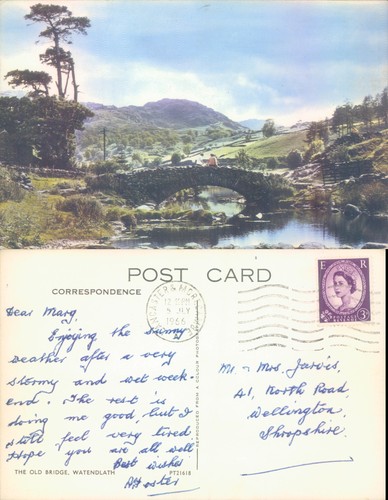 POST CARD
CORRESPONDENCE
Dear Marg,
Enjoying the sunny
weather after a very
stormy and wet week-
end. The rest is
doing me good, but I
still feel very tired.
Hope you are all well
Best wishes
THE OLD BRIDGE, WATENDLATH
PT21618
REPRODUCED FROM A COLOUR
5 JLY
1966
E R
3D
Mr & Mrs. Jarvis,
41, North Road,
Wellington,
Shropshire.